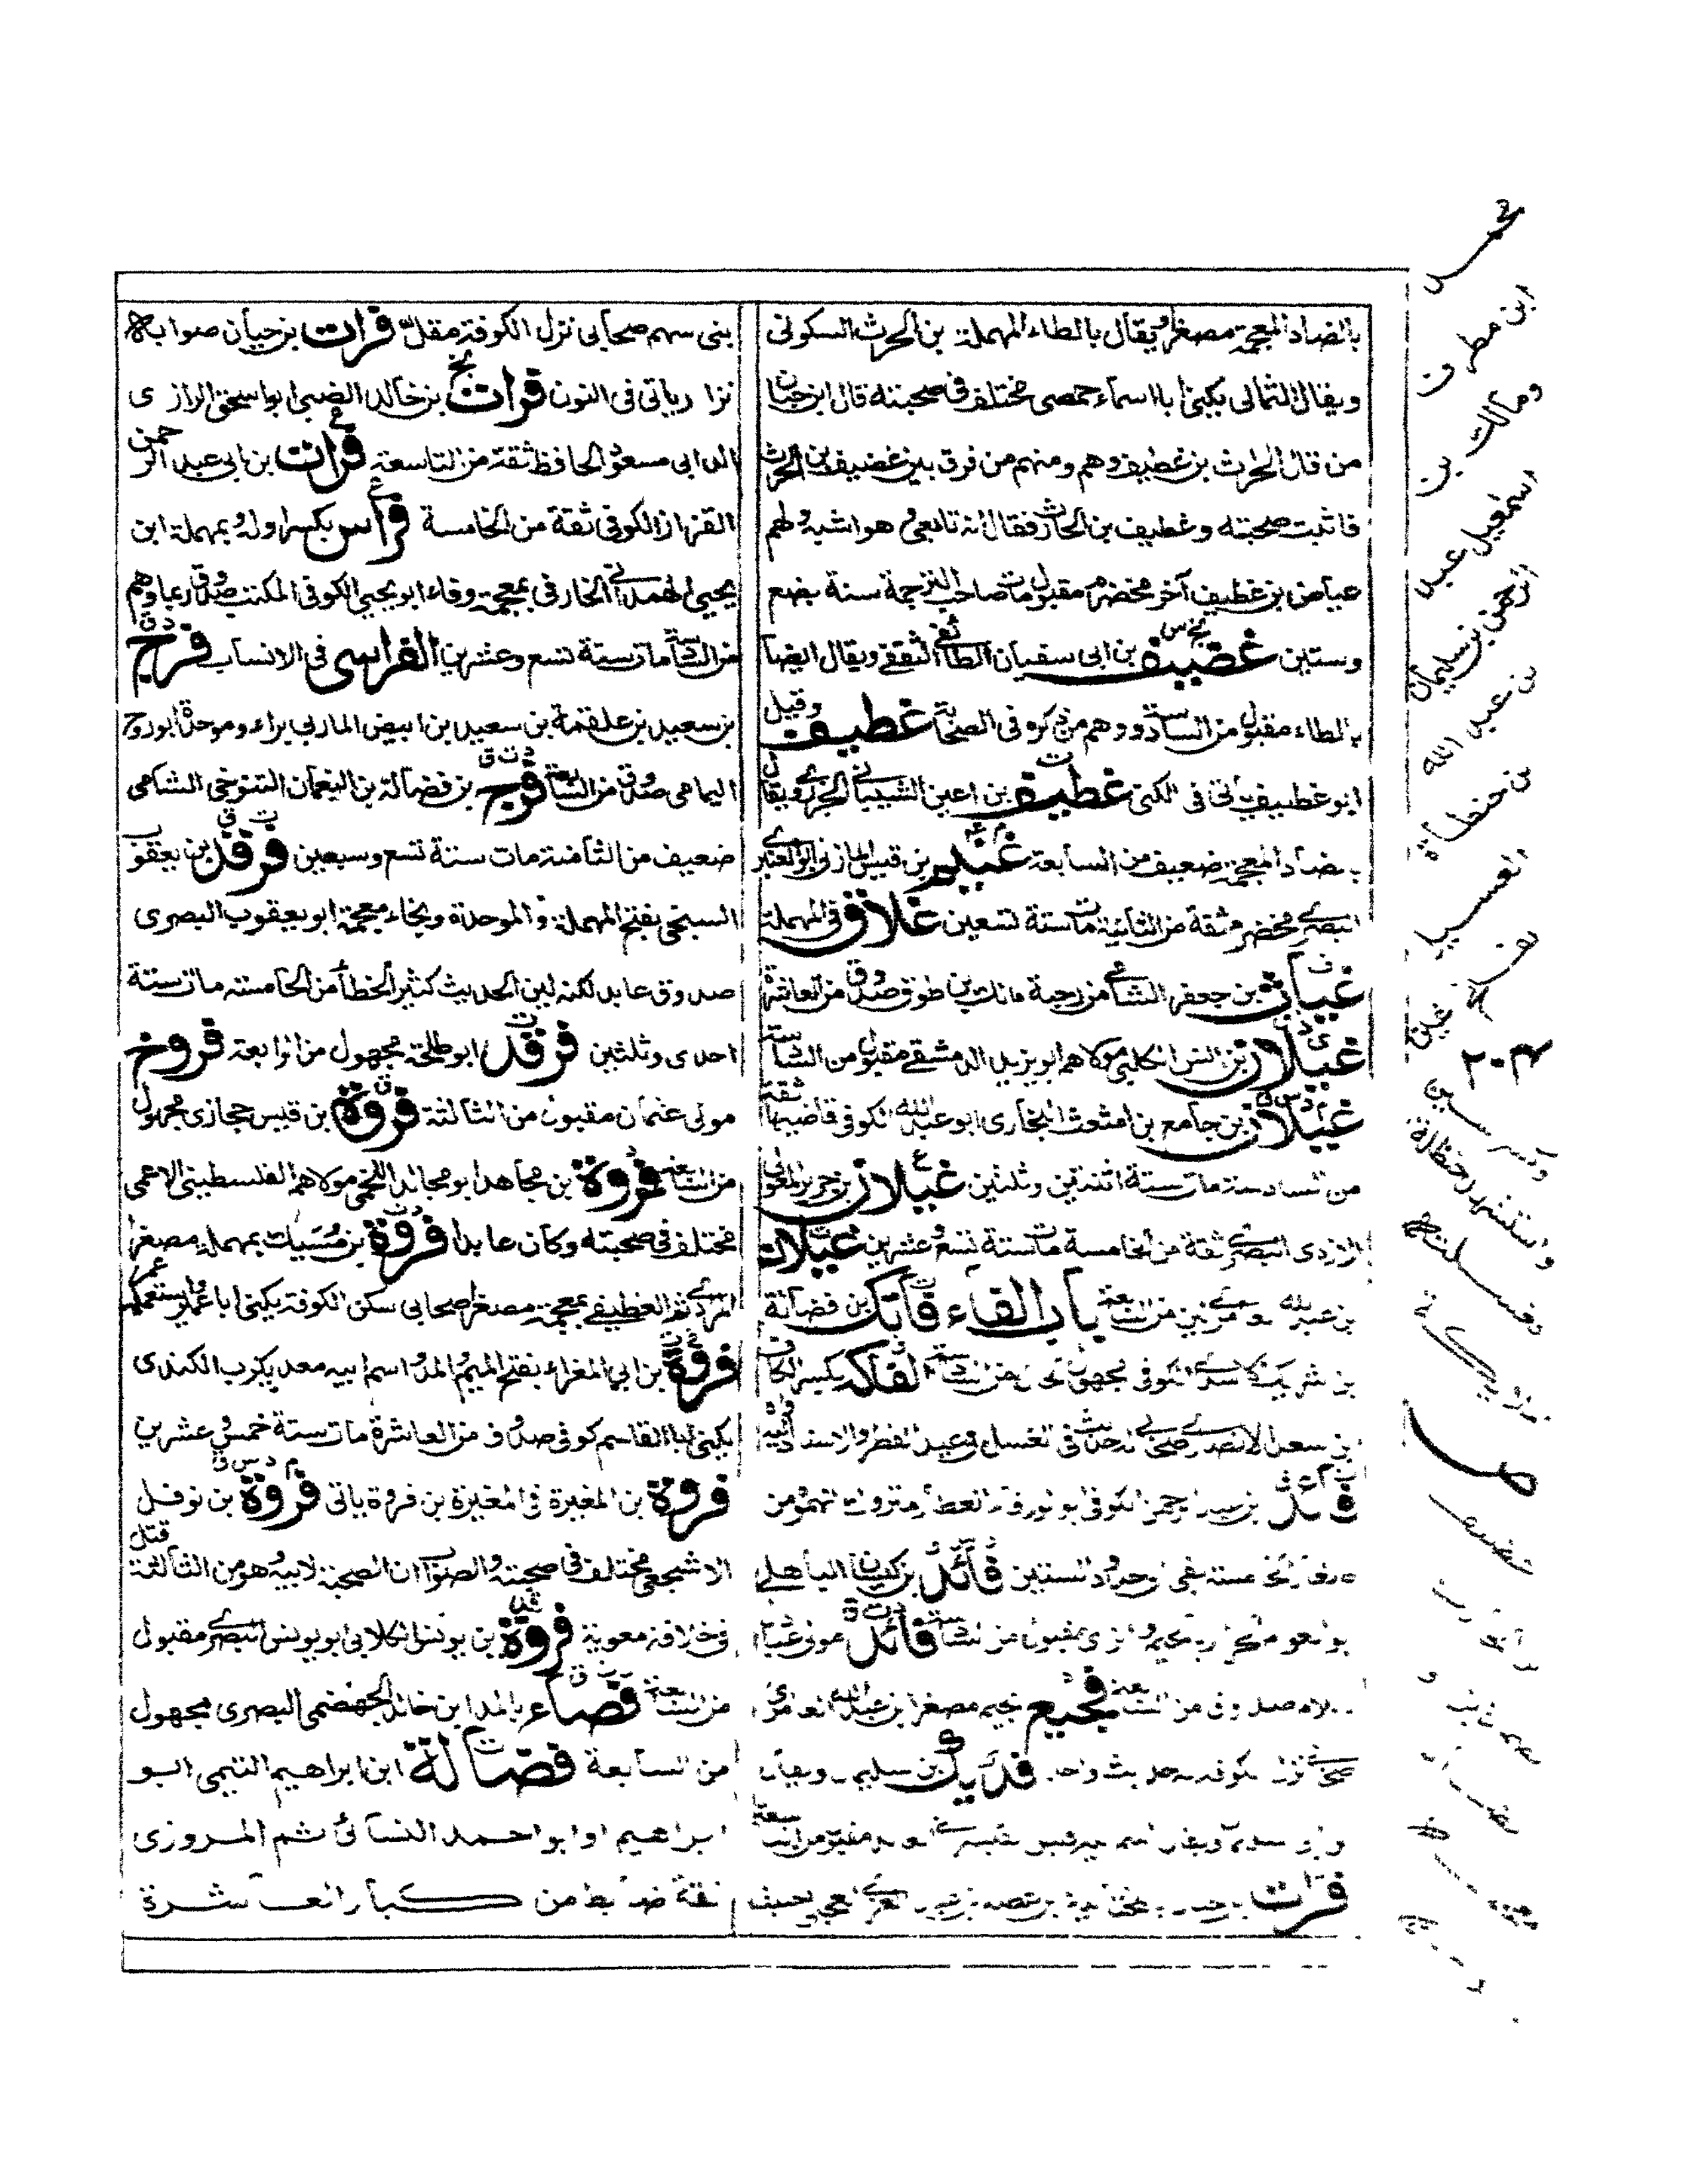 بالضاد المعجمة مصغرا ويقال بالطاء المهملة بن الحرث السكونى
ويقال الثمالى يكنى ابا اسماء حمصى مختلف فى صحبته قال ابن حبان
من قال الحارث بن غطيف وهم ومنهم من فرق بين غضيف بن الحرث
فاثبت صحبته وغطيف بن الحارث فقال انه تابعى وهو اشبه ولهم
عياض بن غطيف آخر مخضرم مقبول مات صاحب الترجمة سنة بضع
وستين غضيف بن ابى سفيان الطائفى الثقفى ويقال ايضا
بالطاء مقبول من السادسة ووهم من ذكره فى الصحابة غطيف وقيل
ابو غطيف يأتى فى الكنى غطيف بن اعين الشيبانى الجزرى ويقال
بضاد المعجمة ضعيف من السابعة غنيم بن قيس المازنى ابو العنبر
البصرى مخضرم ثقة من الثانية مات سنة تسعين غلاق فى المهملة
غياث بن جعفر الشامى من رحبة مالك بن طوق صدوق من العاشرة
غيلان بن انس الكلبى مولاهم ابو يزيد الدمشقى مقبول من السادسة
غيلان بن جامع بن اشعث المحاربى ابو عبد الله الكوفى قاضيها ثقة
من السادسة مات سنة اثنتين وثلثين غيلان بن جرير المعولى
الازدى البصرى ثقة من الخامسة مات سنة تسع وعشرين غيلان
بن عبد الله العامرى لين من السابعة باب الفاء فاتك بن فضالة
بن شريك الاسدى الكوفى مجهول الحال من السادسة الفاكه بكسر الكاف
بن سعد الانصارى صحابى له حديث فى الغسل يوم عيد الفطر والاسناد اليه
فائد بن عبد الرحمن الكوفى ابو الورقاء العطار متروك اتهموه من
صغار الخامسة بقى الى حدود الستين فائد بن كيسان الباهلى
ابو العوام الجزار بجيم وزاى مقبول من السادسة فائد مولى عبادل
صدوق من السابعة فجيع بجيم مصغرا بن عبد الله العامرى
صحابى نزل الكوفة له حديث واحد فديك بن سليمان ويقال
فرات
بنى سهم صحابى نزل الكوفة مقل فرات بن حيان صوابه
نزار ياتى فى النون فرات بن خالد الضبى ابو اسحق الرازى
الد ابى مسعود الحافظ ثقة من التاسعة فرات بن ابى عبد الرحمن
القزاز الكوفى ثقة من الخامسة فراس بكسر اوله وبمهملة ابن
يحيى الهمدانى الخارفى بمعجمة وفاء ابو يحيى الكوفى المكتب صدوق ربما وهم
من السادسة مات سنة تسع وعشرين الفراسى فى الانساب فرج
بن سعيد بن علقمة بن سعيد بن ابيض الماربى براء وموحدة ابو روح
اليمامى صدوق من السابعة فرج بن فضالة بن النعمان التنوخى الشامى
ضعيف من الثامنة مات سنة تسع وسبعين فرقد بن يعقوب
السبخى بفتح المهملة والموحدة وبخاء معجمة ابو يعقوب البصرى
صدوق عابد لكنه لين الحديث كثير الخطأ من الخامسة مات سنة
احدى وثلثين فرقد ابو طلحة مجهول من الرابعة فروخ
مولى عثمان مقبول من الثالثة فروة بن قيس حجازى مجهول
من السابعة فروة بن مجاهد ابو مجالد اللخمى مولاهم الفلسطينى الاعمى
مختلف فى صحبته وكان عابدا فروة بن مسيك بمهملة مصغرا
المرادى ثم الغطيفى بمعجمة مصغرا صحابى سكن الكوفة يكنى ابا عمير واستعمله عمر
فروة بن ابى المغراء بفتح الميم والمد واسم ابيه معديكرب الكندى
يكنى ابا القاسم كوفى صدوق من العاشرة مات سنة خمس وعشرين
فروة بن المغيرة فى المغيرة بن فروة ياتى فروة بن نوفل
الاشجعى مختلف فى صحبته والصواب ان الصحبة لابيه وهو من الثالثة قتل
فى خلافة معوية فروة بن يونس الكلابى ابو يونس البصرى مقبول
من السابعة فضاء بالمد ابن خالد الجهضمى البصرى مجهول
من السابعة فضالة ابن ابراهيم التيمى ابو
ابراهيم او ابو احمد النسائى ثم المروزى
ثقة ضابط من كبار العاشرة
ابن مطرف
ومالك بن
اسمعيل عبد
الرحمن بن سليمان
بن عبد الله
بن حنظلة
الغسيل